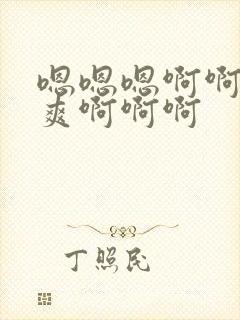 嗯嗯嗯啊啊
爽啊啊啊
丁照民